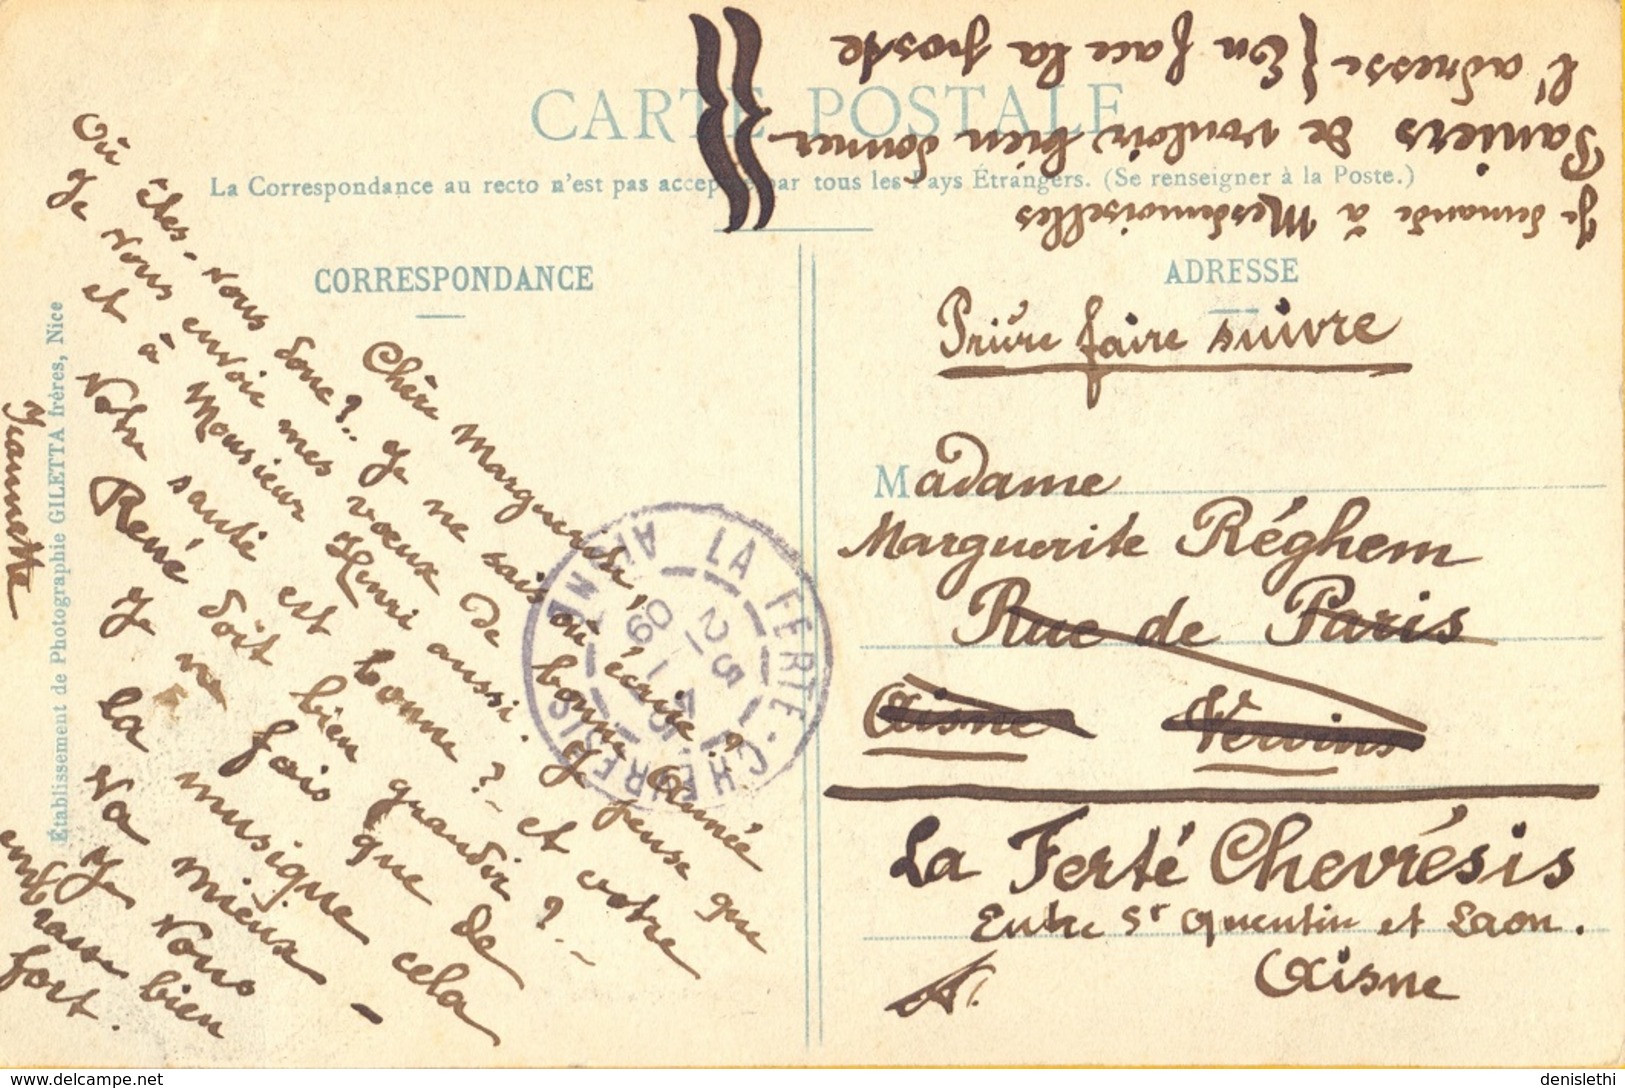 CARTE POSTALE
La Correspondance au recto n'est pas acceptée par tous les Pays Étrangers. (Se renseigner à la Poste.)
CORRESPONDANCE
ADRESSE
Je demande à Mesdemoiselles
Paniers de vouloir bien donner
l'adresse { En face la poste
Prière faire suivre
Madame
Marguerite Réghem
Rue de Paris
Aisne Vervins
La Ferté Chevrésis
Entre St Quentin et Laon.
Aisne
Chère Marguerite,
Où êtes-vous donc?.. Je ne sais où écrire?
Je vous envoie mes vœux de bonne Année
et à Monsieur Henri aussi. Je pense que
Votre santé est bonne? - et votre
René doit bien grandir? -
Je ne fais que de
la musique cela
va mieux -
Je vous
embrasse bien
fort.
Jeannette
LA FERTE-CHEVRESIS
AISNE
Établissement de Photographie GILETTA frères, Nice
www.delcampe.net
denislethi